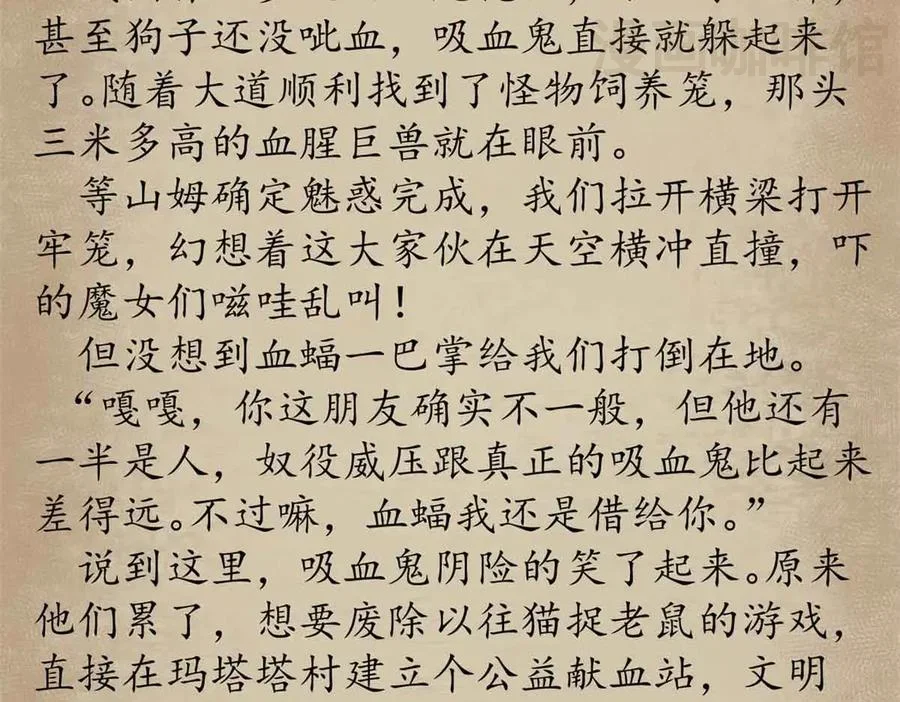 甚至狗子还没呲血，吸血鬼直接就躲起来
了。随着大道顺利找到了怪物饲养笼，那头
三米多高的血腥巨兽就在眼前。
等山姆确定魅惑完成，我们拉开横梁打开
牢笼，幻想着这大家伙在天空横冲直撞，吓
的魔女们嗞哇乱叫！
但没想到血蝠一巴掌给我们打倒在地。
“嘎嘎，你这朋友确实不一般，但他还有
一半是人，奴役威压跟真正的吸血鬼比起来
差得远。不过嘛，血蝠我还是借给你。”
说到这里，吸血鬼阴险的笑了起来。原来
他们累了，想要废除以往猫捉老鼠的游戏，
直接在玛塔塔村建立个公益献血站，文明
漫画咖啡馆